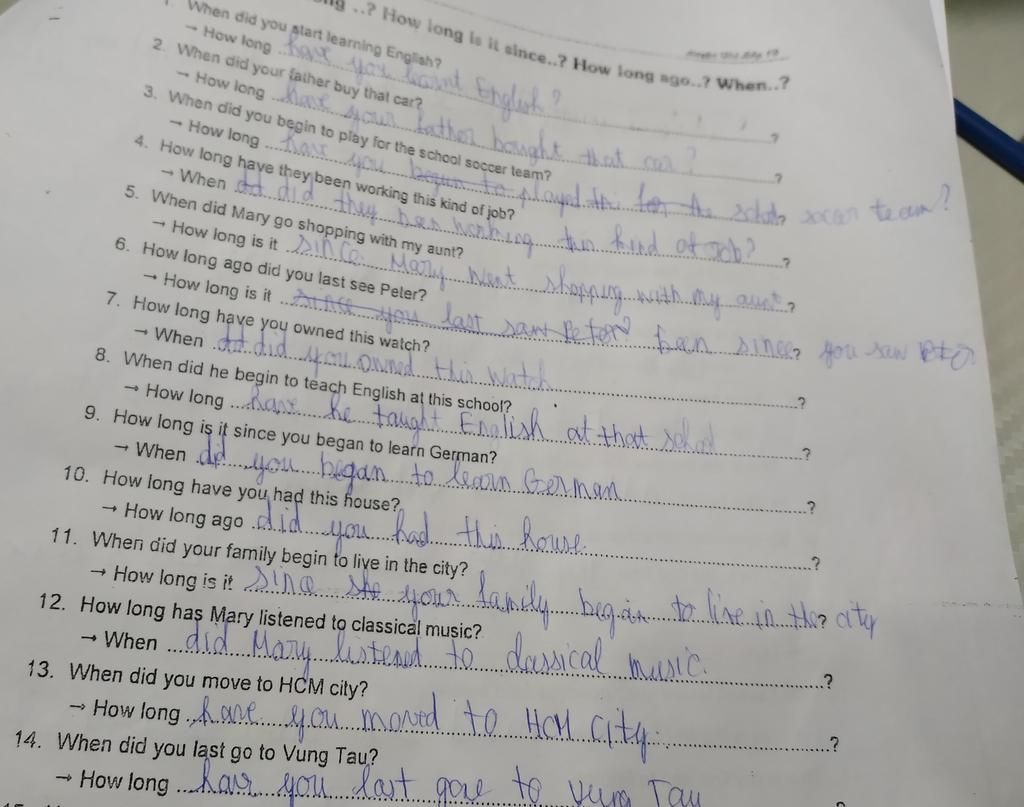 ..? How long is it since..? How long ago..? When..?
1. When did you start learning English?
→ How long have you learnt English?
2. When did your father buy that car?
→ How long have your father bought that car? ?
3. When did you begin to play for the school soccer team?
→ How long have you began to played the for the soccer team? ?
4. How long have they been working this kind of job?
→ When did did they been working this kind of job? ?
5. When did Mary go shopping with my aunt?
→ How long is it since Mary went shopping with my aunt ?
6. How long ago did you last see Peter?
→ How long is it since you last saw Peter? been since you saw ?
7. How long have you owned this watch?
→ When did did you owned this watch ?
8. When did he begin to teach English at this school?
→ How long have he taught English at that ?
9. How long is it since you began to learn German?
→ When did you began to learn German ?
10. How long have you had this house?
→ How long ago did you had this house ?
11. When did your family begin to live in the city?
→ How long is it since your family began to live in the city ?
12. How long has Mary listened to classical music?
→ When did Mary listened to classical music. ?
13. When did you move to HCM city?
→ How long have you moved to HCM City. ?
14. When did you last go to Vung Tau?
→ How long have you last gone to Vung Tau